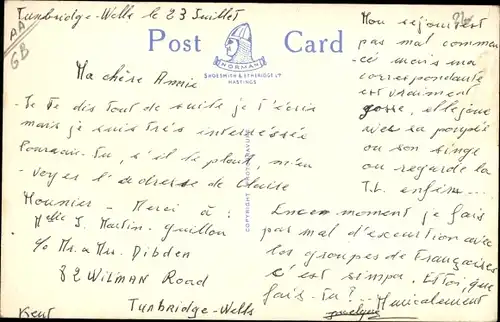 Tunbridge-Wells le 23 Juillet
AA
GB
Post Card
NORMAN
SHOESMITH & ETHERIDGE LTD
HASTINGS
COPYRIGHT PHOTOGRAVURE
Ma chère Annie
Je Te dis tout de suite je t'écris
mais je suis très intéressée
Pourrais-Tu, s'il te plaît, m'en
voyer l'adresse de Claise
Mounier - Merci à :
Melle J. Martin-Guillou
c/o Mr. a Mrs Dibden
82 WILMAN ROAD
Tunbridge-Wells
Kent
Mon séjour n'est
pas mal commen-
cé mais ma
correspondante
est vraiment
gosse, elle joue
avec sa poupée
ou son singe
ou regarde la
T.L. enfin...
En ce moment je fais
pas mal d'excursion avec
les groupes de Françaises
c'est sympa. Et toi, que
fais-Tu? ... Amicalement